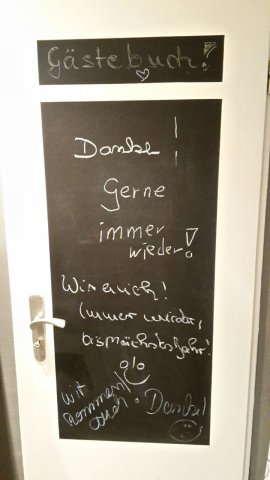 Gästebuch!
Danke!
Gerne
immer
wieder!
Wir euch!
Immer wieder,
bis nächstes Jahr!
Wir
kommen
auch!
Danke!